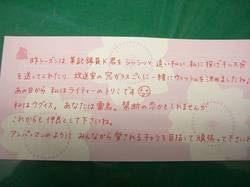 昨シーズンは、某記録員K君をジャンケンで追い払い、私に投げキッス🤍
を送ってくれたり、放送室の窓ガラスごしに一緒にウィッシュを決めましたね♪
あの日から 私はライティーのトリコです
私はウグイス。あなたは雷鳥。禁断の恋かもしれませんが
これからも仲良くして下さいね。
アンパンマンのように みんなから愛されるキャラを目指して頑張って下さいね